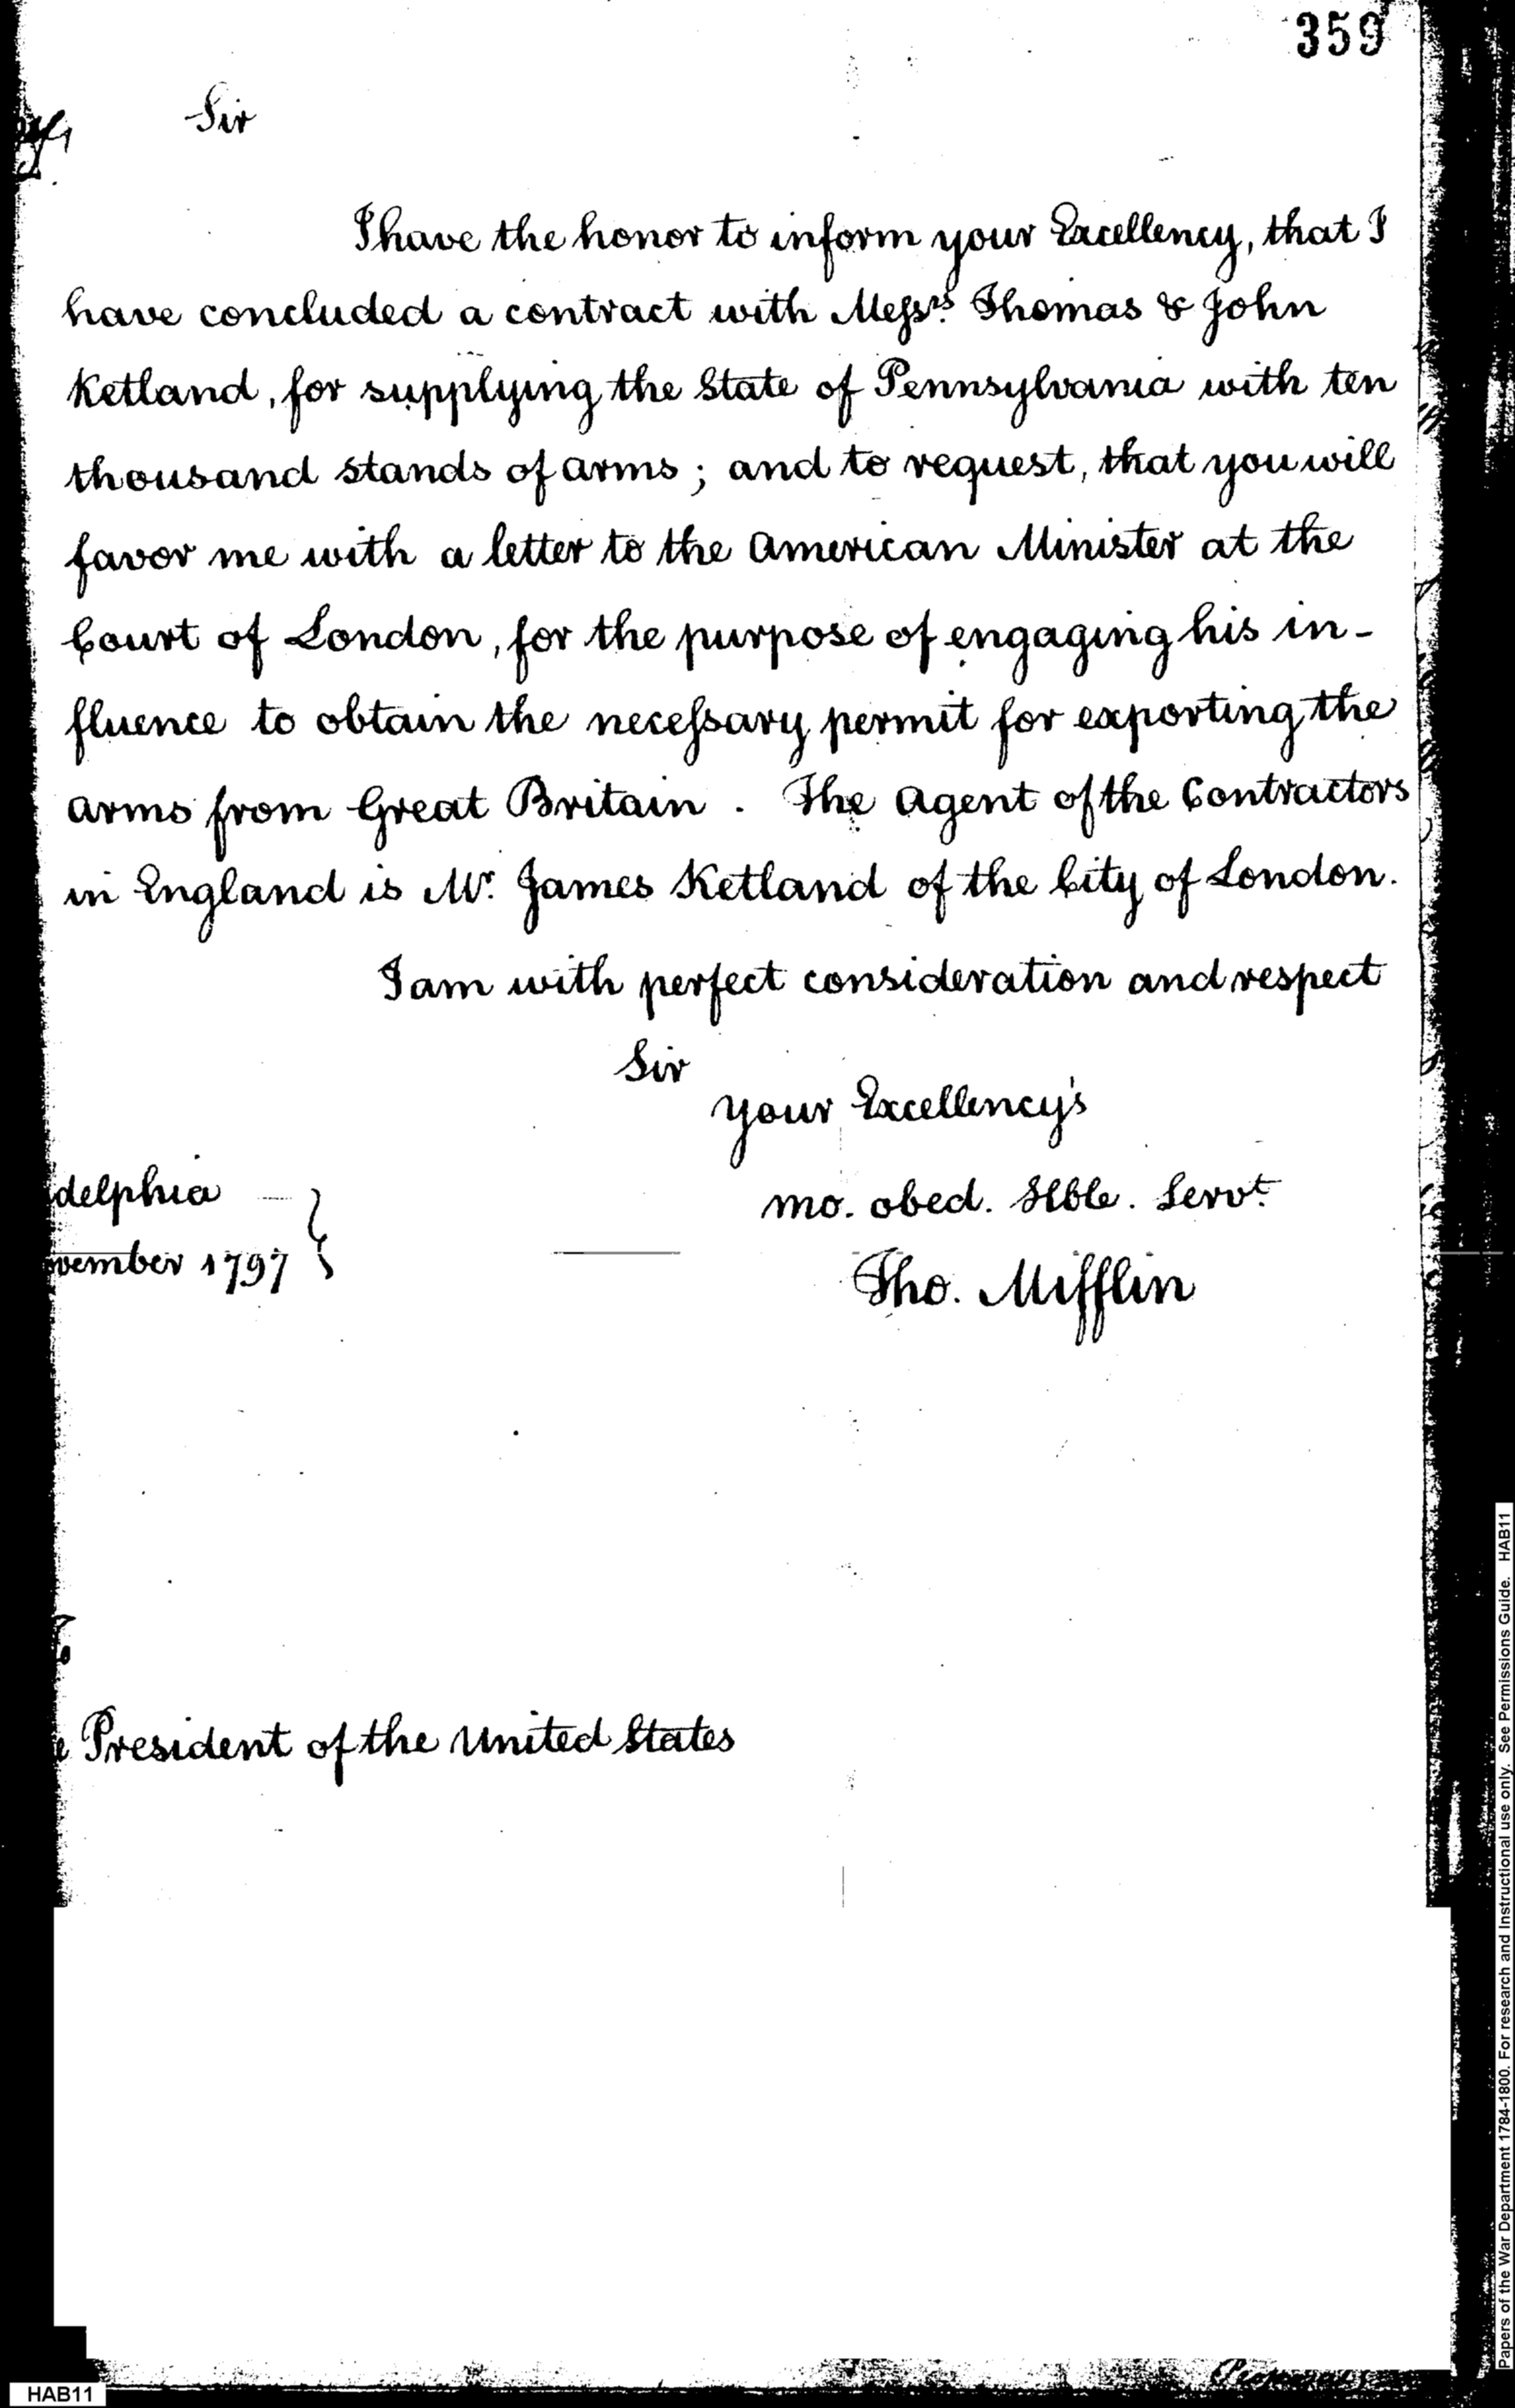 359
Sir
I have the honor to inform your Excellency, that I
have concluded a contract with Messrs. Thomas & John
Ketland, for supplying the State of Pennsylvania with ten
thousand stands of arms; and to request, that you will
favor me with a letter to the American Minister at the
Court of London, for the purpose of engaging his in-
fluence to obtain the necessary permit for exporting the
arms from Great Britain. The Agent of the Contractors
in England is Mr. James Ketland of the City of London.
I am with perfect consideration and respect
Sir
Your Excellency's
mo. obed. Hble. Servt.
Tho. Mifflin
delphia
vember 1797
President of the United States
Papers of the War Department 1784-1800. For research and Instructional use only. See Permissions Guide. HAB11
HAB11